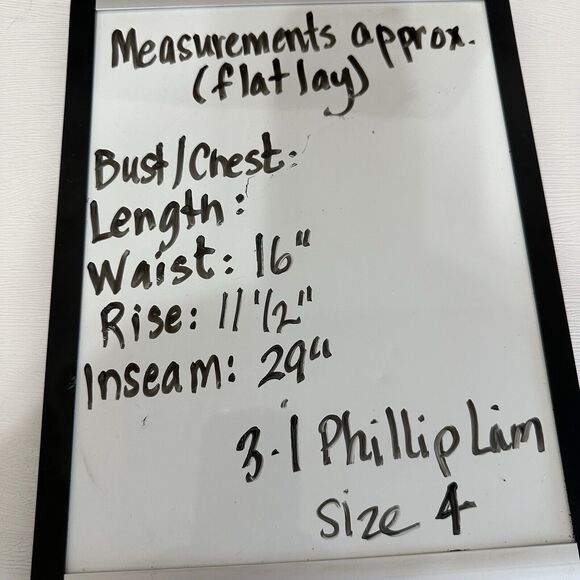 Measurements approx.
(flat lay)
Bust/Chest:
Length:
Waist: 16"
Rise: 11 1/2"
Inseam: 29"
3.1 Phillip Lim
Size 4